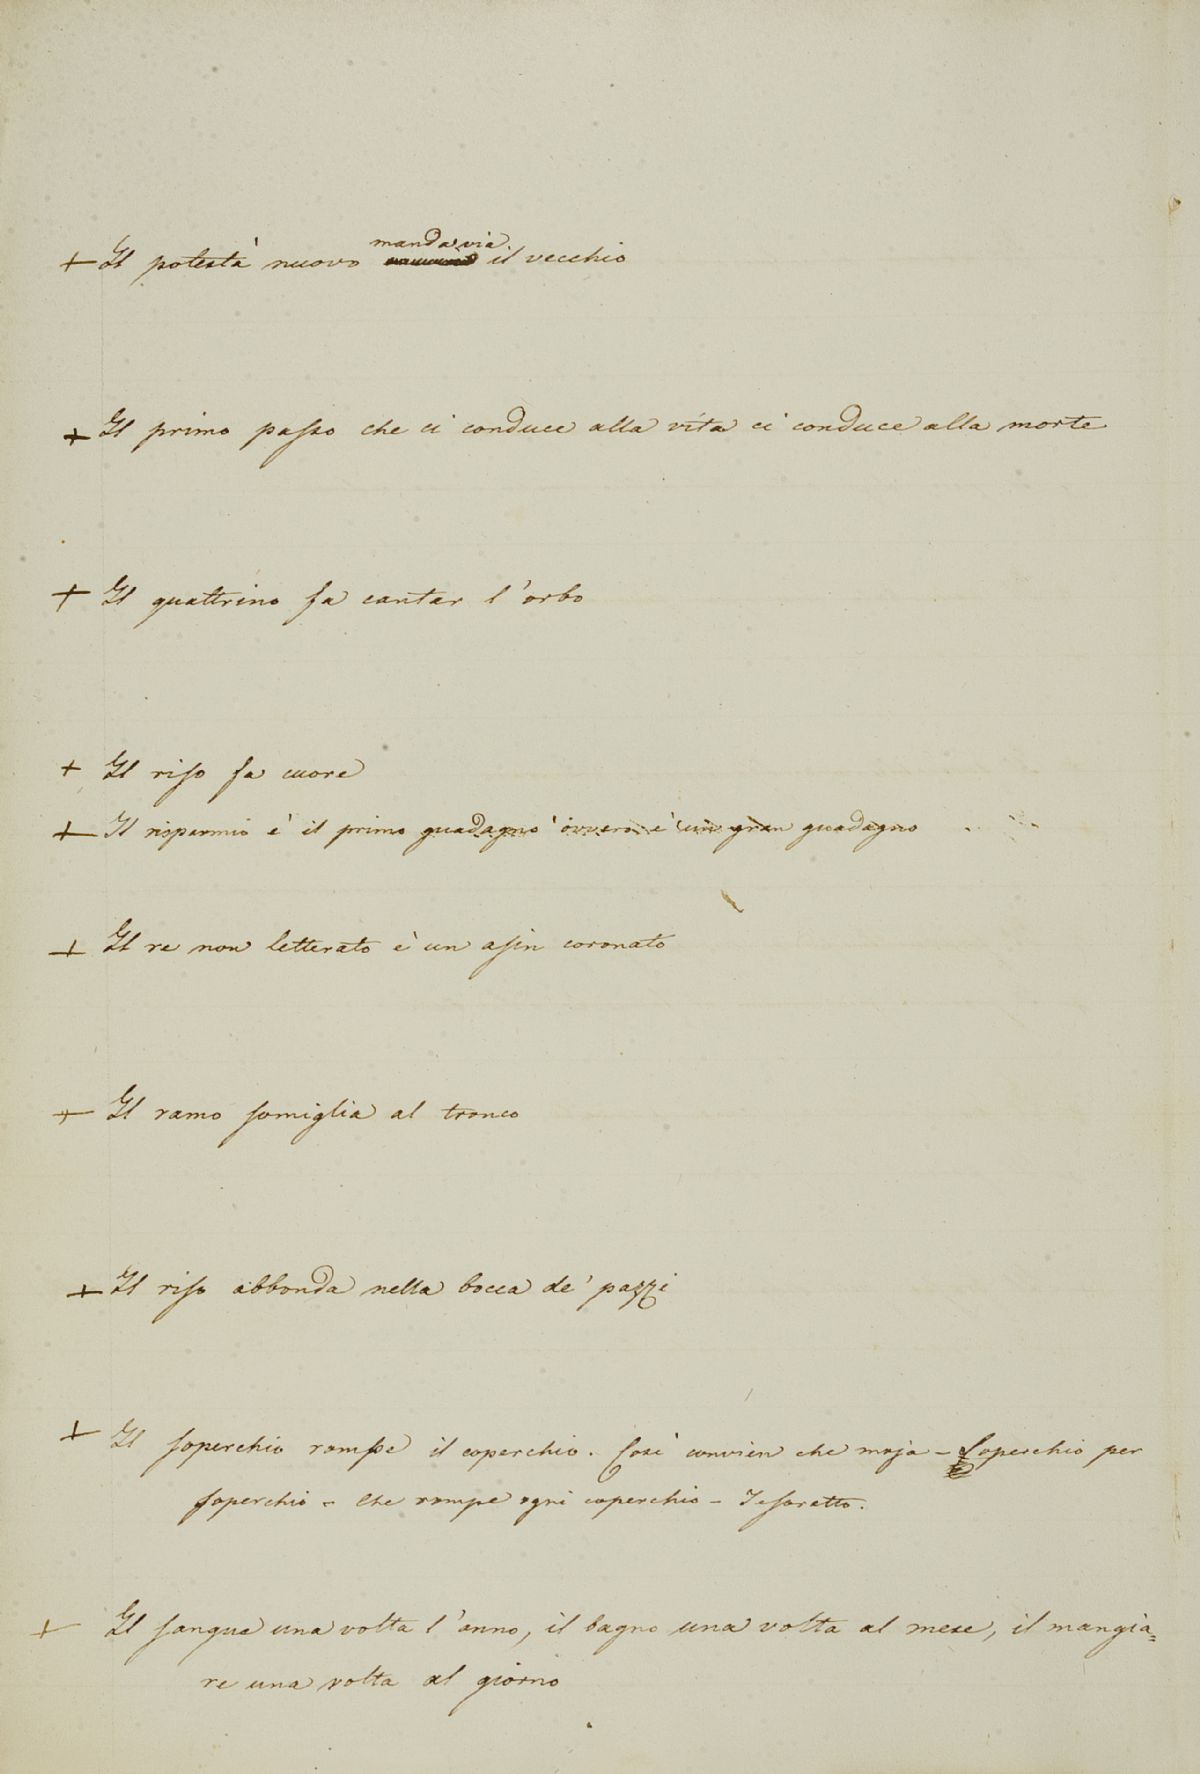 + Il potestà nuovo manda via il vecchio
+ Il primo passo che ci conduce alla vita ci conduce alla morte
+ Il quattrino fa cantar l'orbo
+ Il riso fa cuore
+ Il risparmio è il primo guadagno ovvero è un gran guadagno
+ Il re non letterato è un asin coronato
+ Il ramo somiglia al tronco
+ Il riso abbonda nella bocca de' pazzi
+ Il soperchio rompe il coperchio. Così convien che moja - Soperchio per
soperchio - Che rompe ogni coperchio - Tesoretto.
+ Il sangue una volta l'anno, il bagno una volta al mese, il mangia=
re una volta al giorno